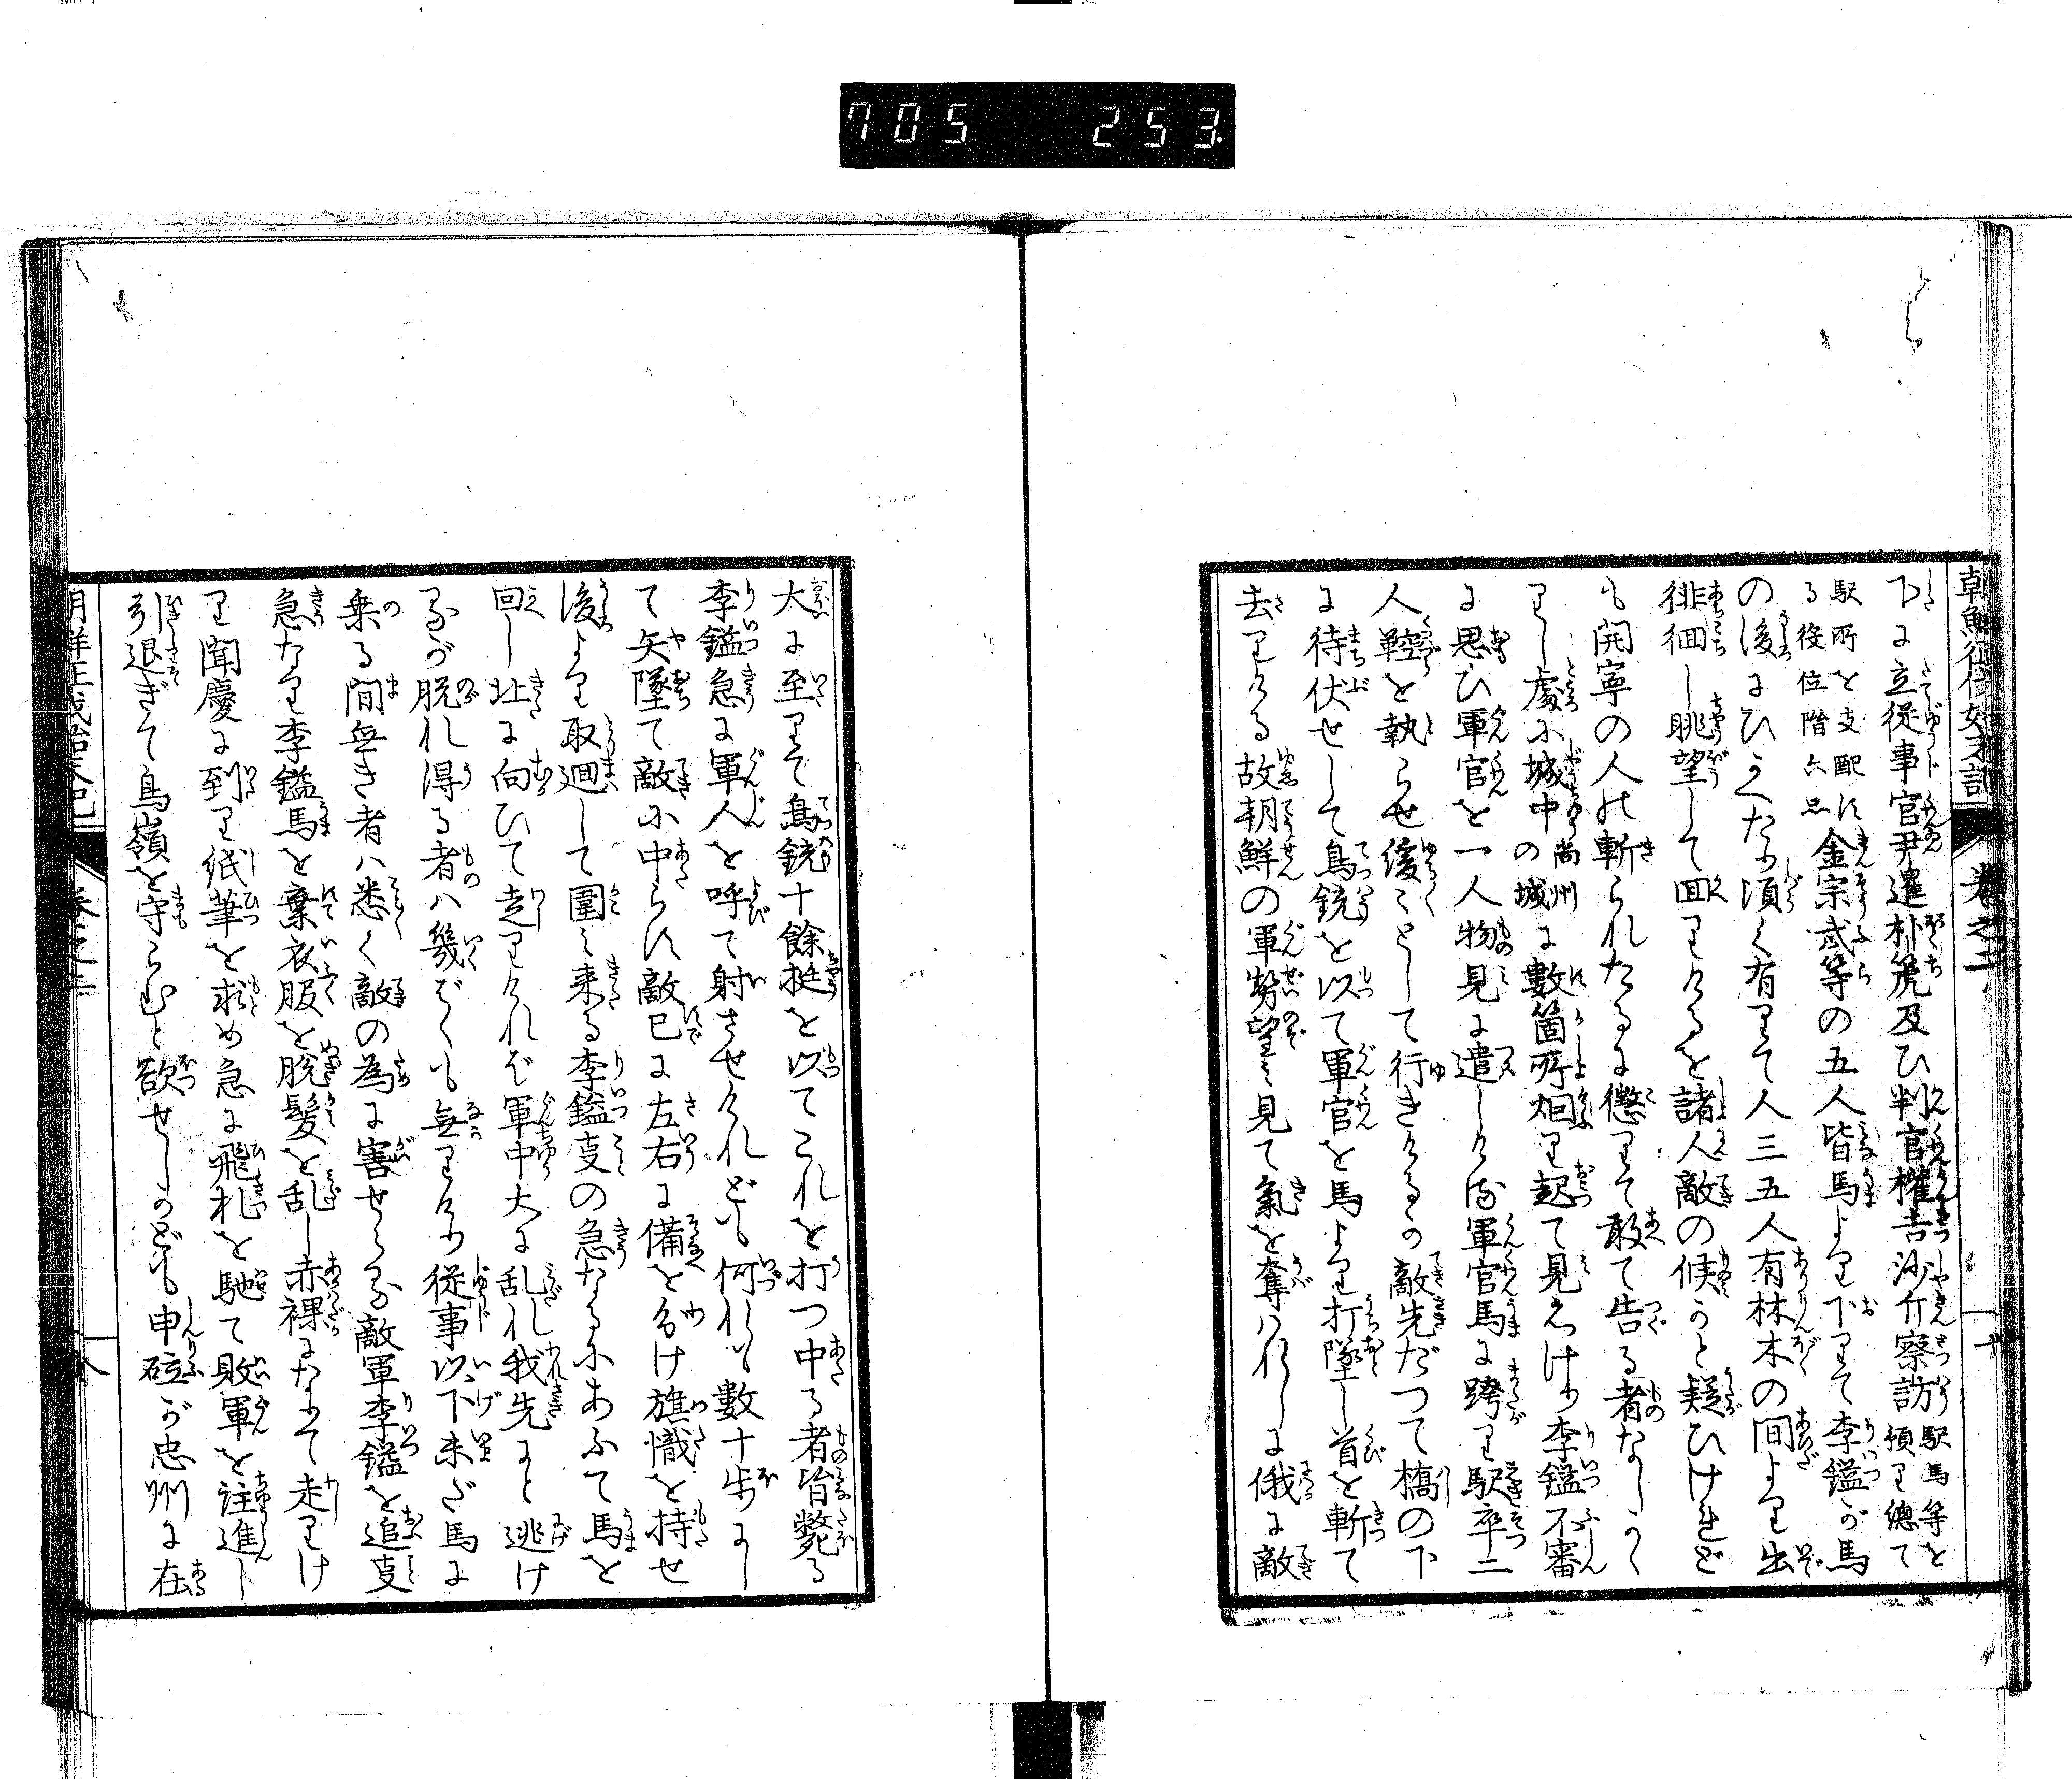 705 253
朝鮮征伐始末記 巻之二 十八
下に立従事官尹暹朴箎及ひ判官權吉沙斤察訪 駅馬等を預り總て
駅所を支配する役位階六品 金宗武等の五人皆馬より下りて李鎰が馬
の後にひかへたり須く有りて人三五人有林木の間より出
徘徊し眺望して回りけるを諸人敵の候かと疑ひけれど
も開寧の人の斬られたるに懲りて敢て告る者なしかく
りし處に城中 尚州の城 に數箇所烟り起て見えけり李鎰不審
に思ひ軍官を一人物見に遣しける軍官馬に跨り駅卒二
人鞚を執らせ緩〻として行きけるか敵先だつて橋の下
に待伏せして鳥銃を以て軍官を馬より打墜し首を斬て
去りける故朝鮮の軍勢望み見て氣を奪ハれしに俄に敵
大に至りて鳥銃十餘挺を以てこれを打つ中る者皆斃る
李鎰急に軍人を呼て射させけれども何れも數十歩にし
て矢墜て敵に中らす敵已に左右に備を分け旗幟を持せ
後より取廻して圍み来る李鎰亊の急なるにあふて馬を
回し北に向ひて走りけれバ軍中大に乱れ我先にと逃け
るが脱れ得る者ハ幾ばくも無りけり従事以下未だ馬に
乗る間無き者ハ悉く敵の為に害せらる敵軍李鎰を追亊
急なり李鎰馬を棄衣服を脱髪を乱し赤裸になりて走りけ
り聞慶に到り紙筆を求め急に飛札を馳て敗軍を註進し
引退ぎて鳥嶺を守らむと欲せしかども申砬が忠州に在